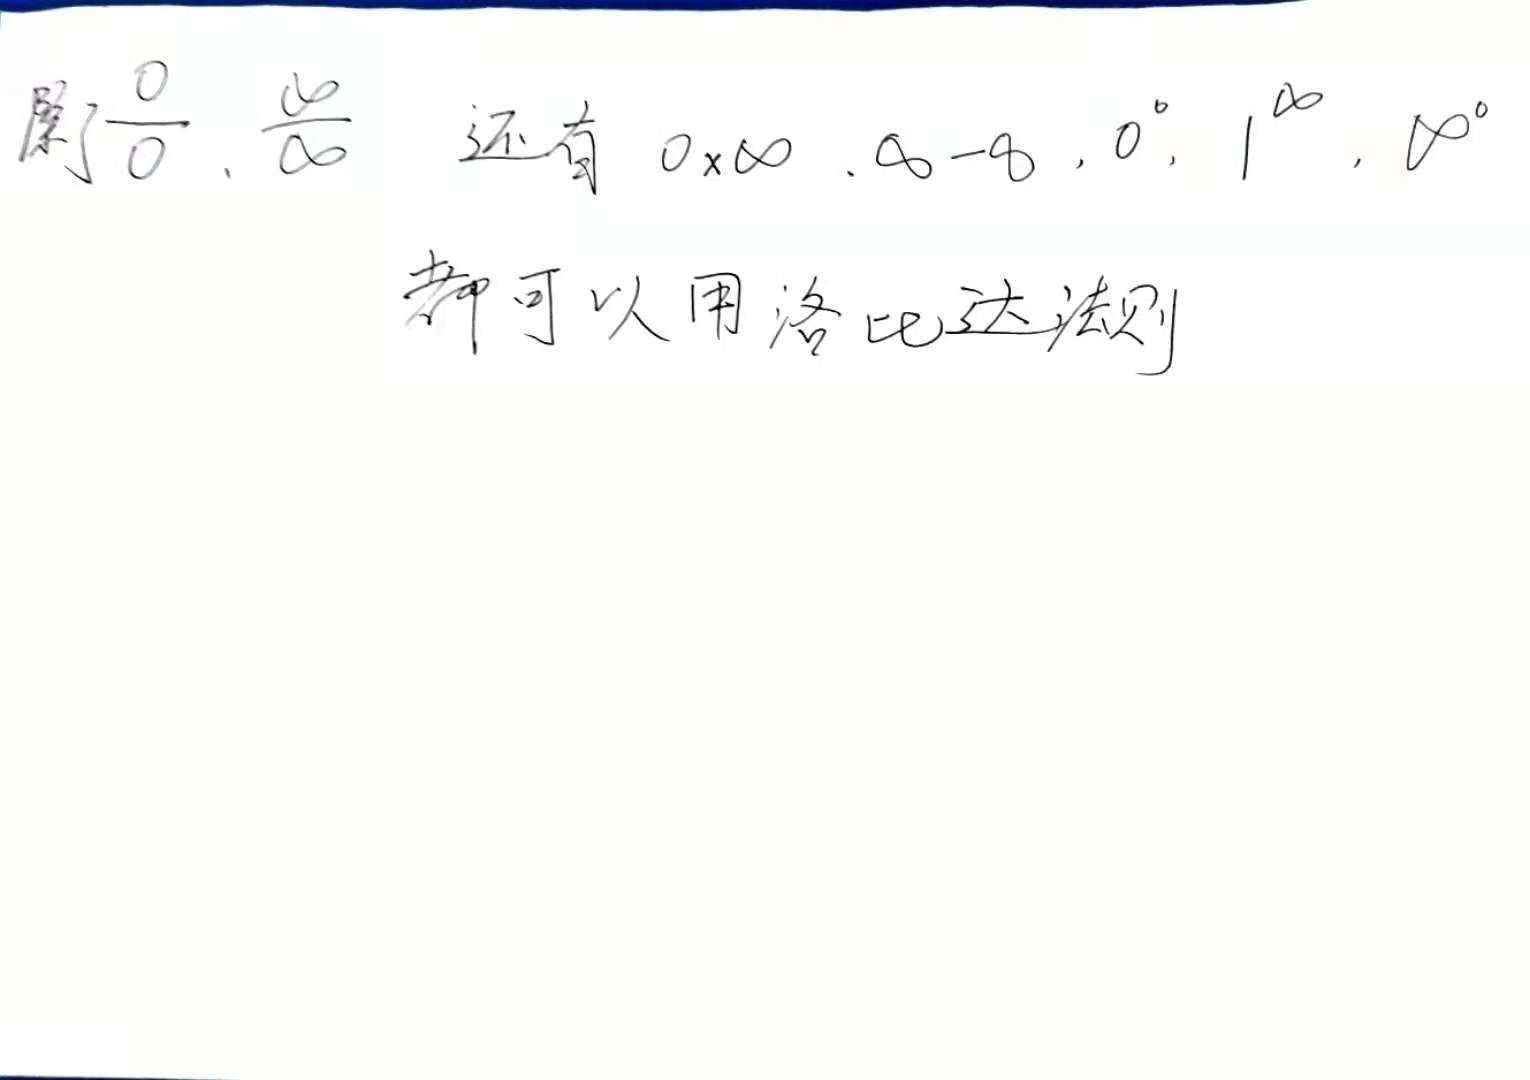 除了 0/0、∞/∞ 还有 0×∞、∞-∞, 0⁰, 1^∞, ∞⁰
都可以用洛比达法则